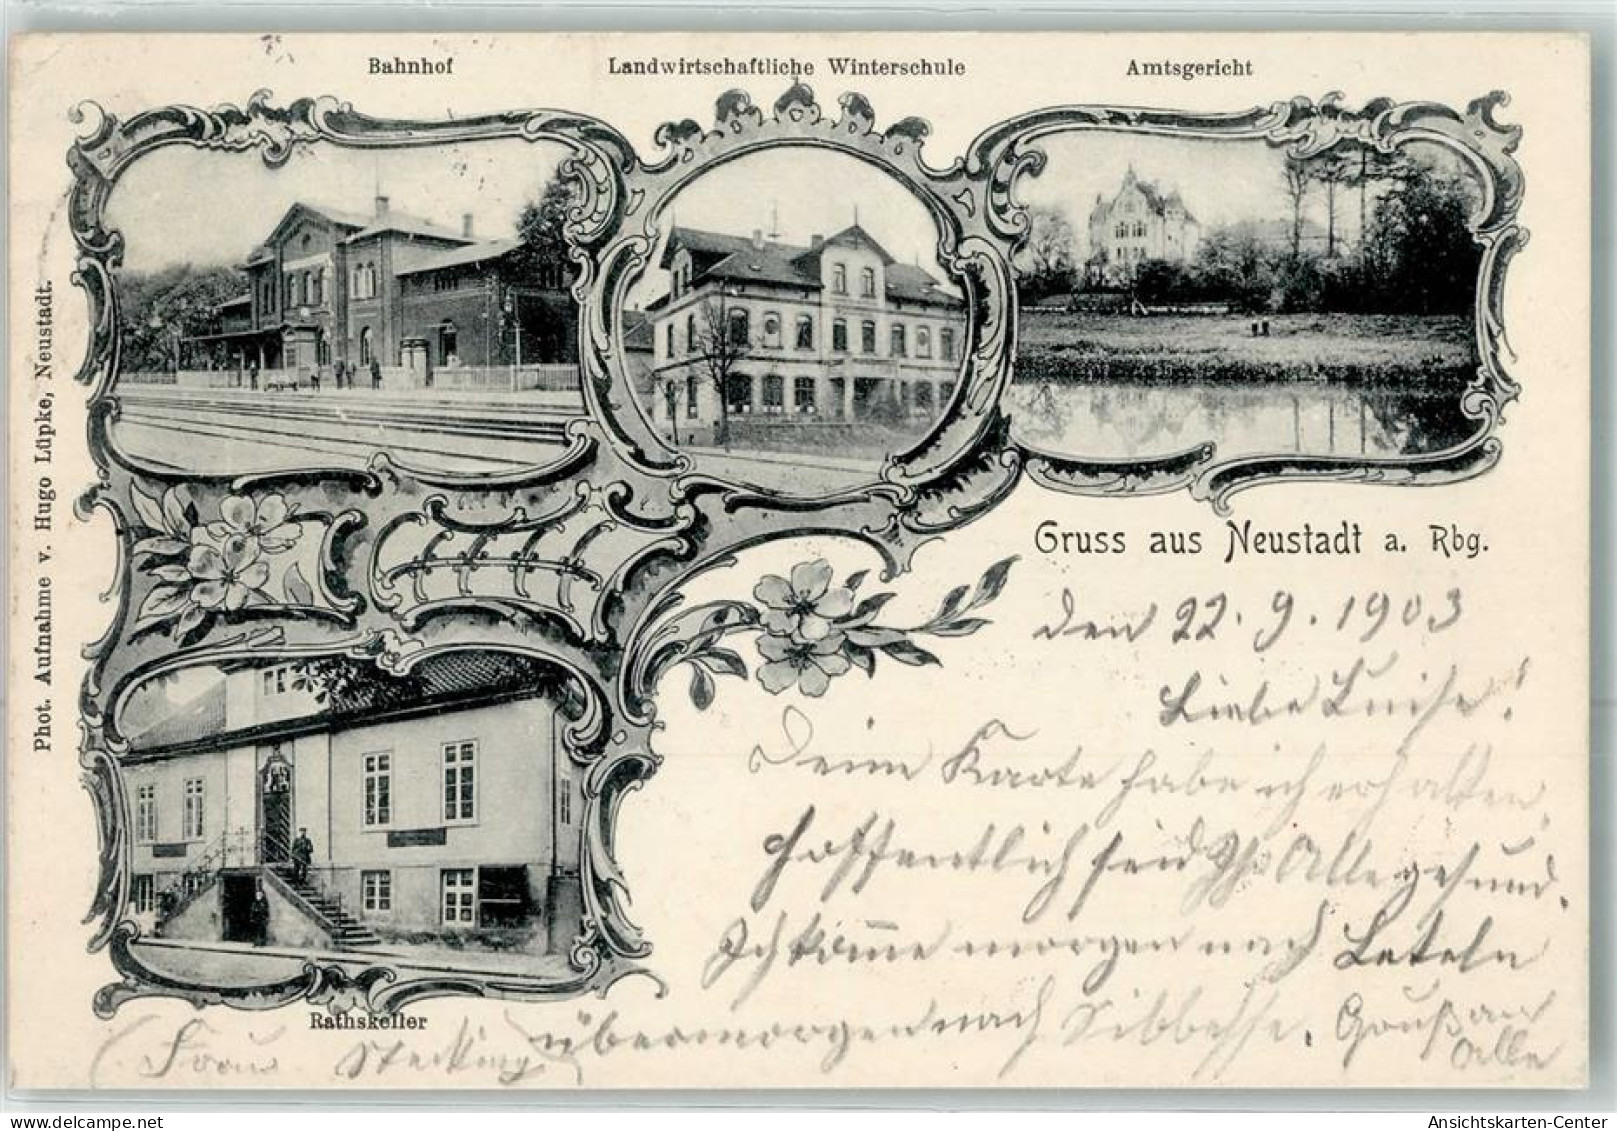 Bahnhof
Landwirtschaftliche Winterschule
Amtsgericht
Phot. Aufnahme v. Hugo Lüpke, Neustadt.
Gruss aus Neustadt a. Rbg.
den 22. 9. 1903
Liebe Luise!
Deine Karte habe ich erhalten,
hoffentlich seid Ihr Alle gesund.
Ich komme morgen nach Leteln
übermorgen nach Sibbesse. Gruß an
Alle
Rathskeller
AnsichtsKarten-Center